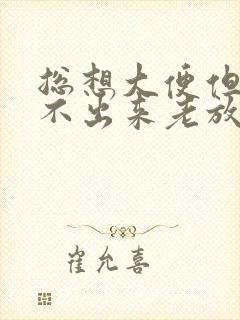 总想大便但
不出来老放
崔允喜